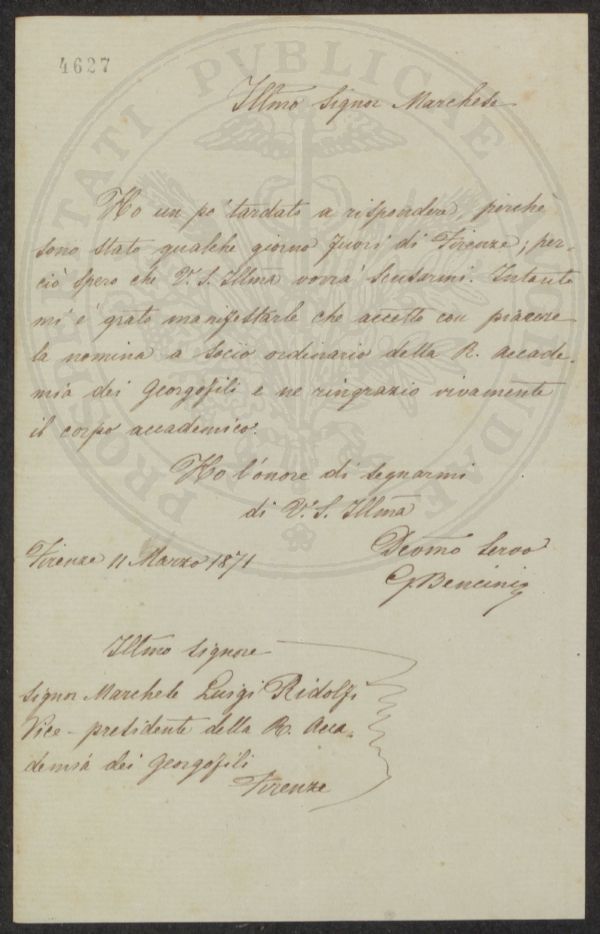 4627
PROSPERITATI PVBLICAE
Illmo Signor Marchese
Ho un po' tardato a rispondere, perchè
sono stato qualche giorno fuori di Firenze; per-
ciò spero che V. S. Illma vorrà scusarmi. Intanto
mi è grato manifestarle che accetto con piacere
la nomina a socio ordinario della R. Accade-
mia dei Georgofili e ne ringrazio vivamente
il corpo accademico.
Ho l'onore di segnarmi
di V. S. Illma
Firenze 11 Marzo 1871
Devmo servo
G Bencini
Illmo Signore
Signor Marchese Luigi Ridolfi
Vice-presidente della R. Acca-
demia dei Georgofili
Firenze